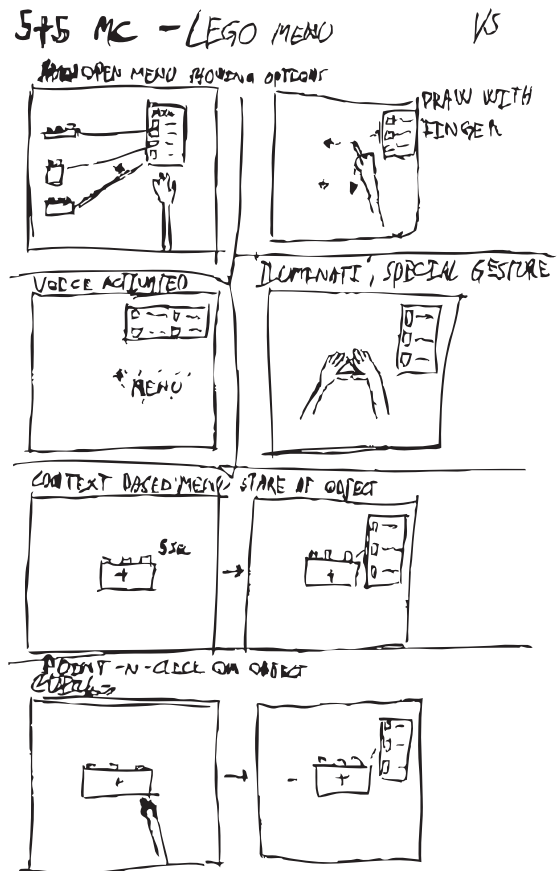 5+5 MC - LEGO MENU
VS
OPEN MENU SHOWING OPTIONS
MENU
DRAW WITH
FINGER
VOICE ACTIVATED
MENU
ILUMINATI, SPECIAL GESTURE
CONTEXT BASED MENU, STARE AT OBJECT
5 SEC
POINT-N-CLICK ON OBJECT